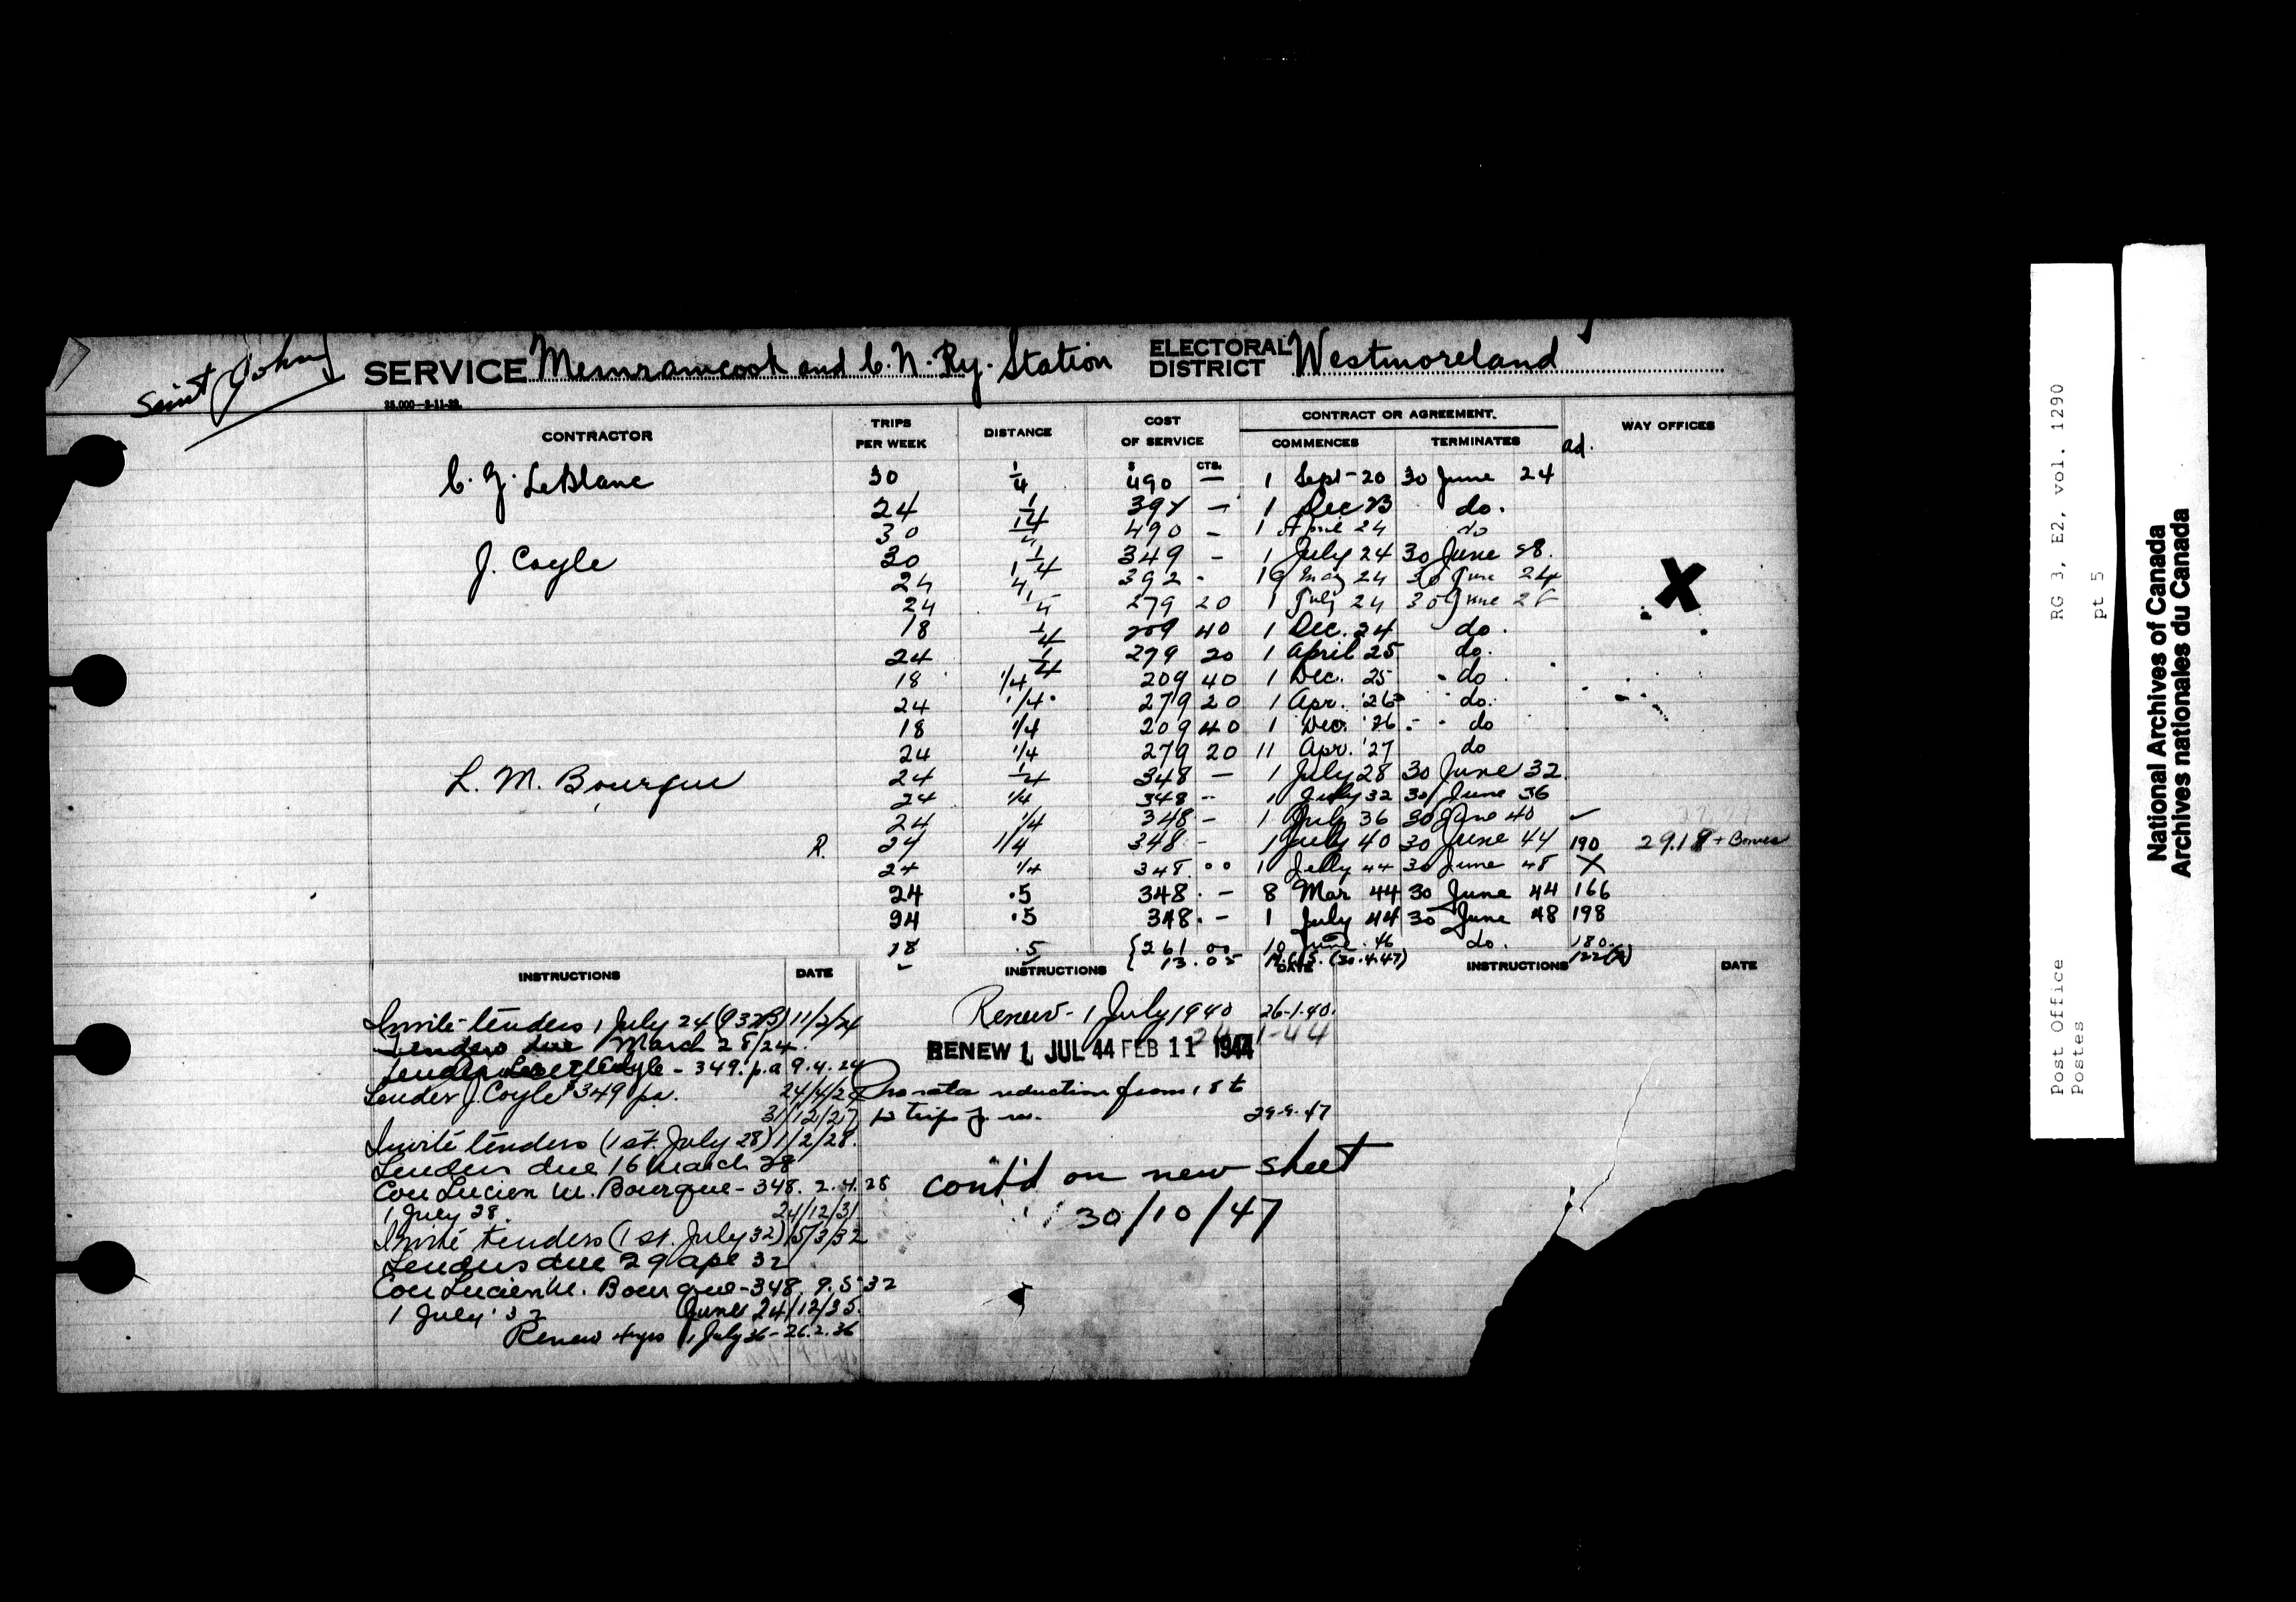 Saint John
SERVICE Memramcook and C. N. Ry. Station ELECTORAL DISTRICT Westmoreland
25,000—2-11-22.
CONTRACTOR TRIPS PER WEEK DISTANCE COST OF SERVICE CONTRACT OR AGREEMENT. COMMENCES TERMINATES ad. WAY OFFICES
$ CTS.
C. J. LeBlanc 30 1/4 490 — 1 Sept-20 30 June 24
24 1/4 392 — 1 Dec 23 do.
30 1/4 490 - 1 April 24 do
J. Coyle 30 1/4 349 - 1 July 24 30 June 28.
24 1/4 392 - 19 May 24 30 June 24
24 1/4 279 20 1 July 24 30 June 28
18 1/4 209 40 1 Dec. 24 do.
24 1/4 279 20 1 April 25 do.
18 1/4 209 40 1 Dec. 25 do
24 1/4 279 20 1 Apr. '26 do.
18 1/4 209 40 1 Dec. '26 do
24 1/4 279 20 11 Apr. '27 do
L. M. Bourque 24 1/4 348 — 1 July 28 30 June 32.
24 1/4 348 - 1 July 32 30 June 36
24 1/4 348 - 1 July 36 30 June 40 ✓
R. 24 1/4 348 - 1 July 40 30 June 44 190 29.18 + Bonus
24 1/4 348. 00 1 July 44 30 June 48 X
24 .5 348. - 8 Mar 44 30 June 44 166
24 .5 348. - 1 July 44 30 June 48 198
18 .5 {261 00 10 June. 46 do. 180.
13.05 (30.4.47) 122
INSTRUCTIONS DATE INSTRUCTIONS DATE INSTRUCTIONS DATE
Invite tenders 1 July 24 (932B) 11/2/24
Tenders due March 28/24.
Coyle - 349. p.a 9.4.24
Tender J. Coyle $349 pa. 24/4/24
31/12/27
Invite tenders (1st. July 28) 1/2/28.
Tenders due 16 March 28
Cou Lucien M. Bourque - 348. 2.4.28
1 July 28. 24/12/31
Invite tenders (1st. July 32) 15/3/32
Tenders due 29 Apl 32
Cou Lucien M. Bourque - 348. 9.5.32
1 July '32 24/12/35.
Renew 4 yrs 1 July 36 - 26.2.36
Renew - 1 July 1940 26-1-40.
24-1-44
RENEW 1 JUL 44 FEB 11 1944
Pro rata reduction from 18 t
12 trips p. w. 29-9-47
cont'd on new sheet
30/10/47
Post Office RG 3, E2, vol. 1290
Postes pt 5
National Archives of Canada
Archives nationales du Canada